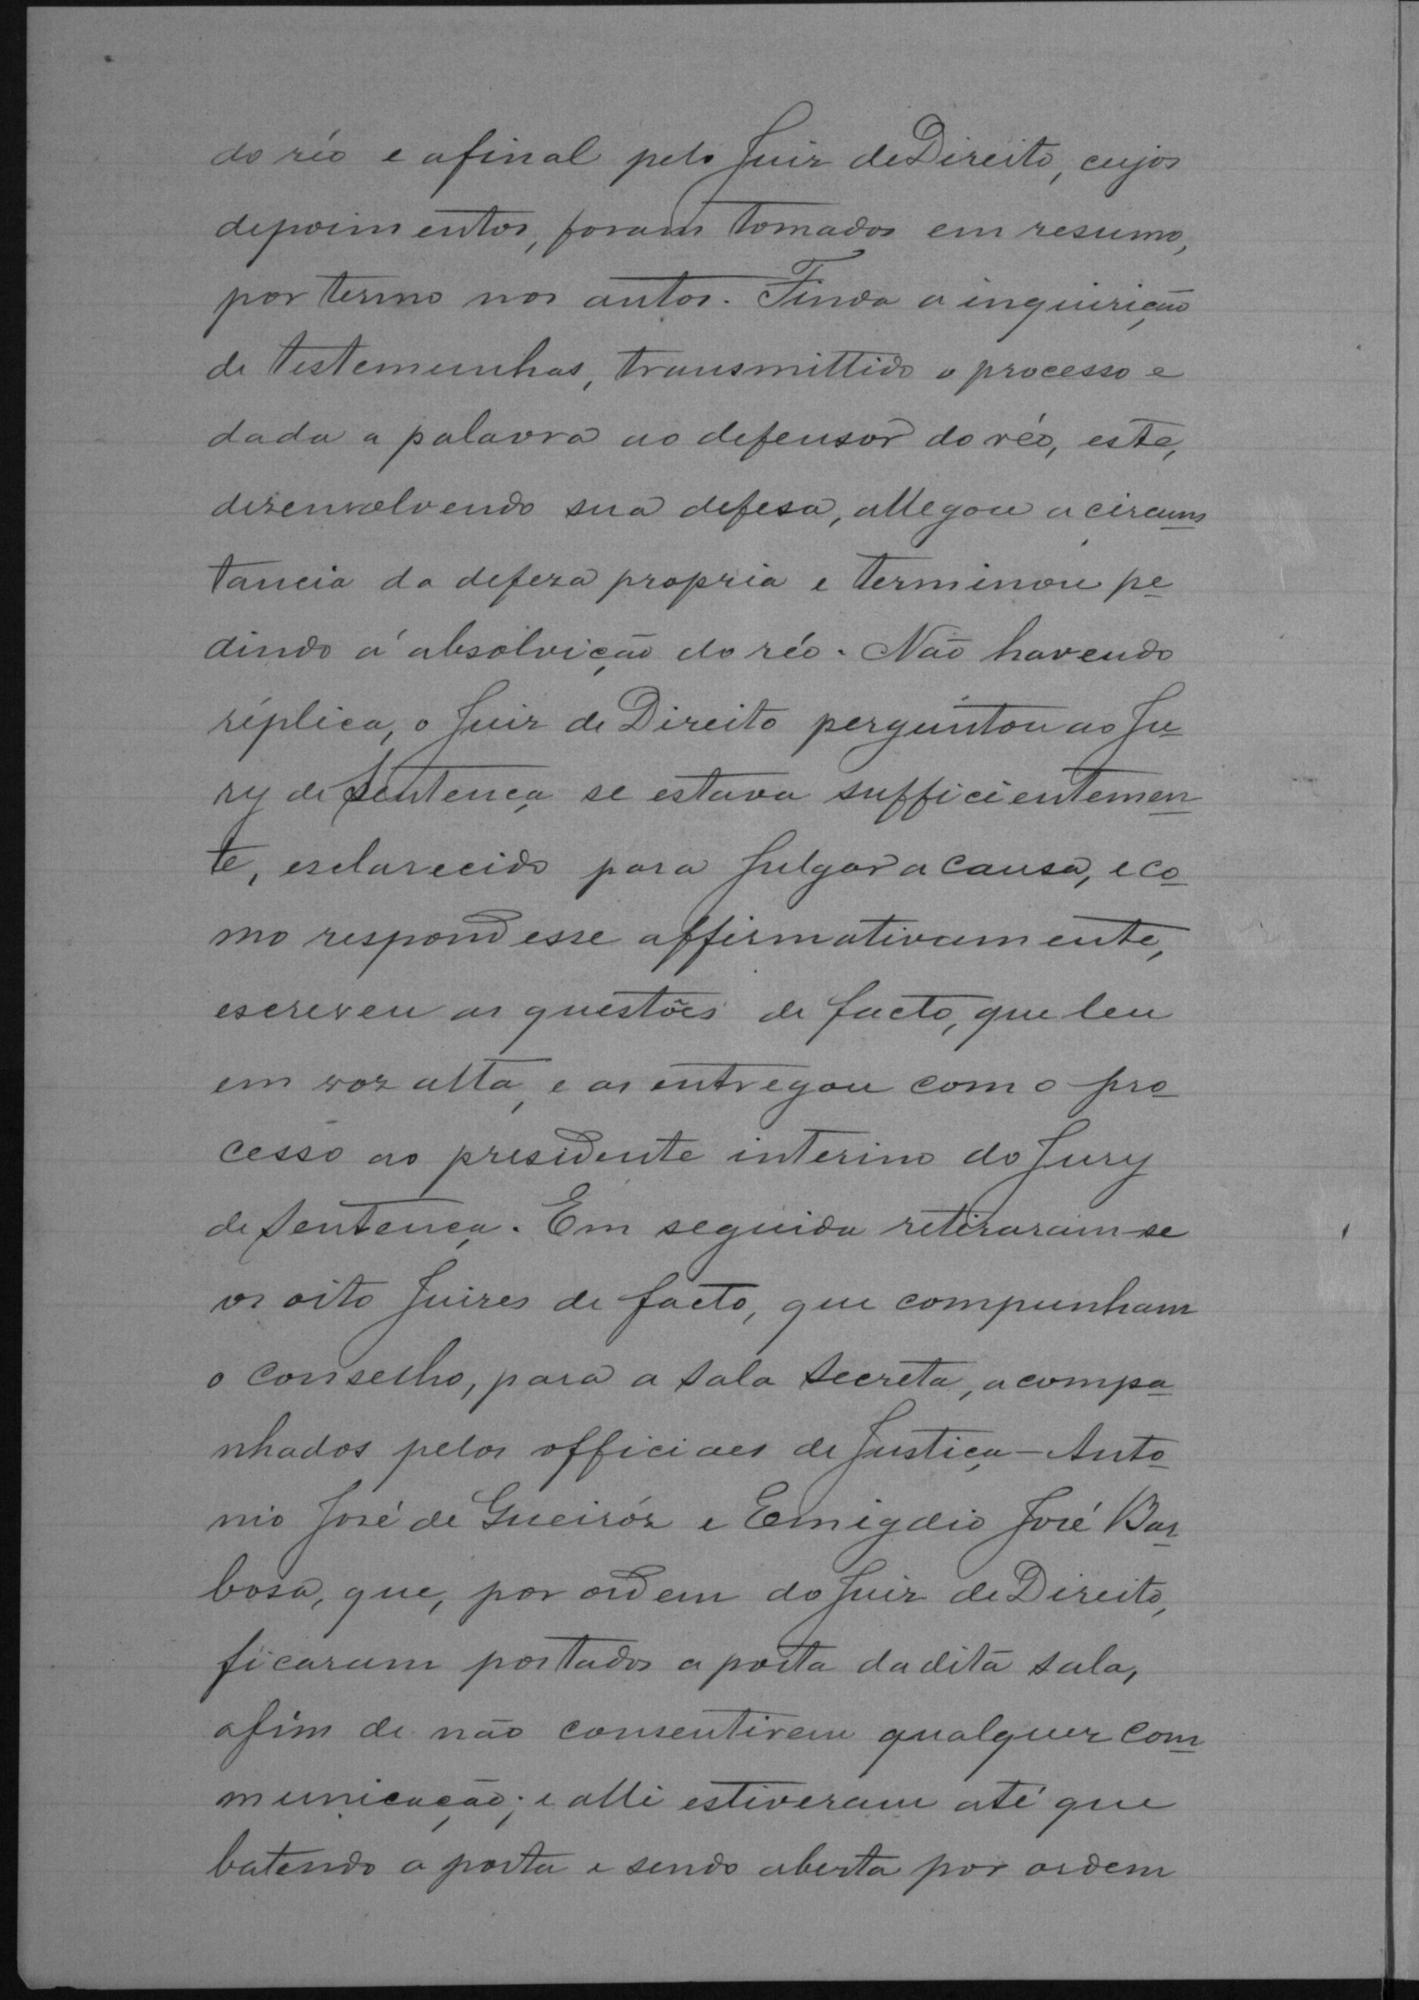 do réo e afinal pelo Juiz de Direito, cujos
depoimentos, foram tomados em resumo,
por termo nos autos. Finda a inquirição
de testemunhas, transmittido o processo e
dada a palavra ao defensor do réo, este,
dezenvolvendo sua defesa, allegou a circums
tancia da defeza propria e terminou pe
dindo a absolvição do réo. Não havendo
réplica, o Juiz de Direito perguntou ao Ju
ry de Sentença se estava sufficientemen
te, esclarecido para julgar a causa, e co
mo respondesse affirmativamente,
escreveu as questões de facto, que leu
em voz alta, e as entregou com o pro
cesso ao presidente interino do Jury
de Sentença. Em seguida retiraram-se
os oito Juizes de facto, que compunham
o conselho, para a sala secreta, acompa
nhados pelos officiaes de Justiça - Anto
nio José de Gueiróz e Emigdio José Bar
bosa, que, por ordem do Juiz de Direito,
ficaram postados a porta da dita sala,
afim de não consentirem qualquer com
municação; e alli estiveram até que
batendo a porta e sendo aberta por ordem